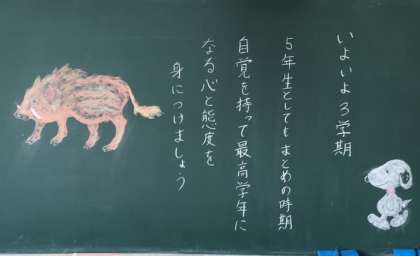 いよいよ3学期
5年生としてもまとめの時期
自覚を持って最高学年に
なる心と態度を
身につけましょう